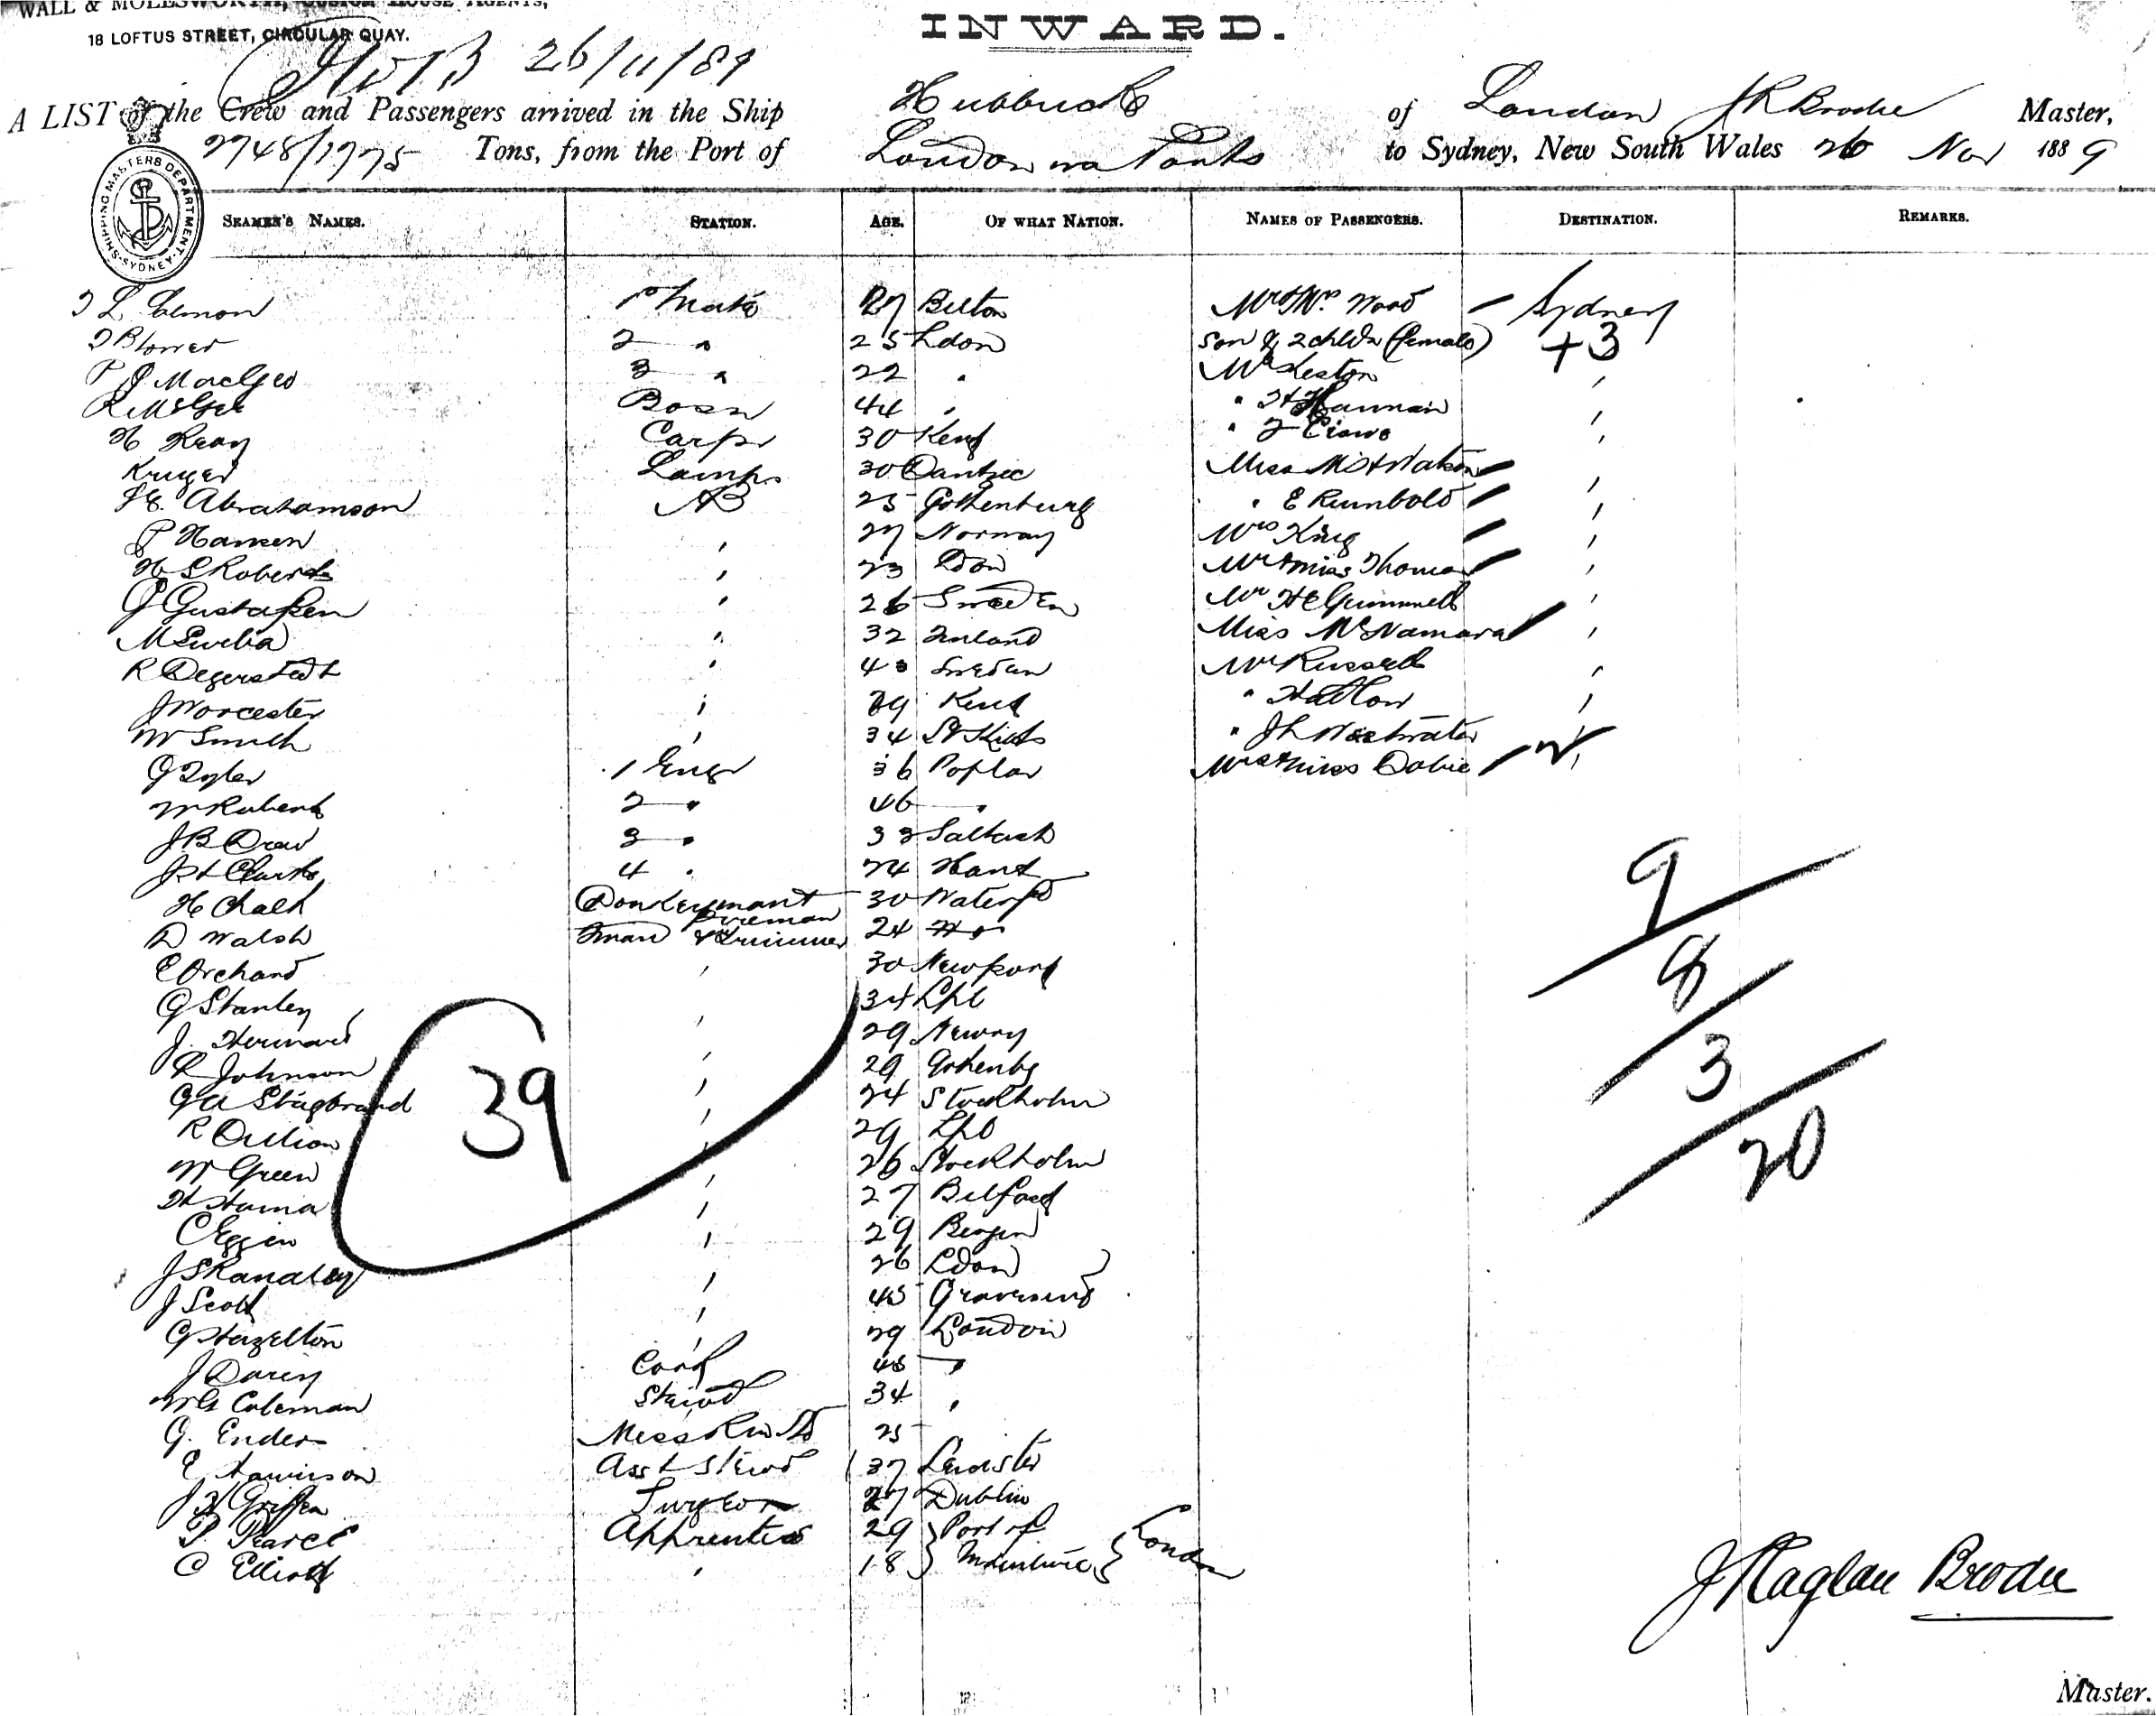 WALL & MOLESWORTH, CUSTOM HOUSE AGENTS,
18 LOFTUS STREET, CIRCULAR QUAY.
INWARD.
26/11/89
A LIST of the Crew and Passengers arrived in the Ship Hubbuck of London JRBrodie Master,
2748/1775 Tons, from the Port of London via Ports to Sydney, New South Wales 26 Nov 1889
SHIPPING MASTERS DEPARTMENT SYDNEY
SEAMEN'S NAMES. STATION. AGE. OF WHAT NATION. NAMES OF PASSENGERS. DESTINATION. REMARKS.
1st Mate 27 Mr & Mrs Wood Sydney
2 " 25 Ldon son & 2 chldn (female) +3
3 " 22 " Mr
R McGee Bosn 44 " " H Hannan
H Carpr 30 Kent "
Kruger Lamps 30 Dantzic Miss
Abrahamson AB 25 Gothenburg " E Rumbold
P Hansen " 27 Norway Mrs King
H S Roberts " 23 Ldon Mr & Miss Thomas
Gustafsen " 26 Sweden Mr
" 32 Finland Miss McNamara
R Degerstedt " 40 Sweden Mr Russell
J Worcester " 29 Kent "
W Smith " 34 St Kitts " J L Westwater
G Tyler 1 Engr 36 Poplar Mrs & Miss Dobie
W Roberts 2 " 46 "
J B Drew 3 " 33 Saltash
J H Clarke 4 " 24 Hants
H Chalk Donkeyman & Fireman 30 Waterfd
D Walsh Fman & Trimmer 24
E Orchard " 30 Newport
G Stanley " 34 Lpl
J. " 29 Newry
R Johnson " 29 Gothenbg
G A Stagbrand " 24 Stockholm
R " 29 Lpl
W Green " 26 Stockholm
H Hanna " 27 Belfast
C Eggen " 29 Bergen
J " 26 Ldon
J Scott " 45 Gravesend
G Hazelton " 29 London
J Darcy Cook 45 "
W G Coleman Stewd 34 "
G. Enders Messroom Std 25
E Asst Stewd 37 Leicester
J Griffin Surgeon 27 Dublin
P. Pearce Apprentice 29 Port of
C Elliott " 18 Indenture London
39
9
8
3
20
J Raglan Brodie
Master.